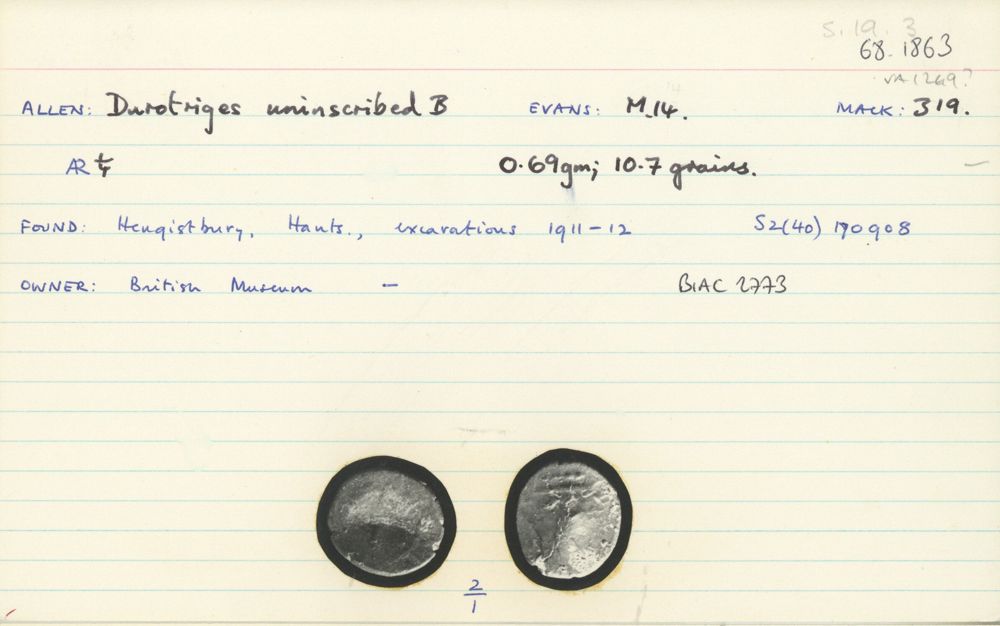 S. 19. 3
68.1863
VA1269?
ALLEN: Durotriges uninscribed B EVANS: M.14. MACK: 319.
AR ¼ 0.69gm; 10.7 grains.
FOUND: Hengistbury, Hants., excavations 1911-12 SZ(40) 170908
OWNER: British Museum — BIAC 2773
2
1